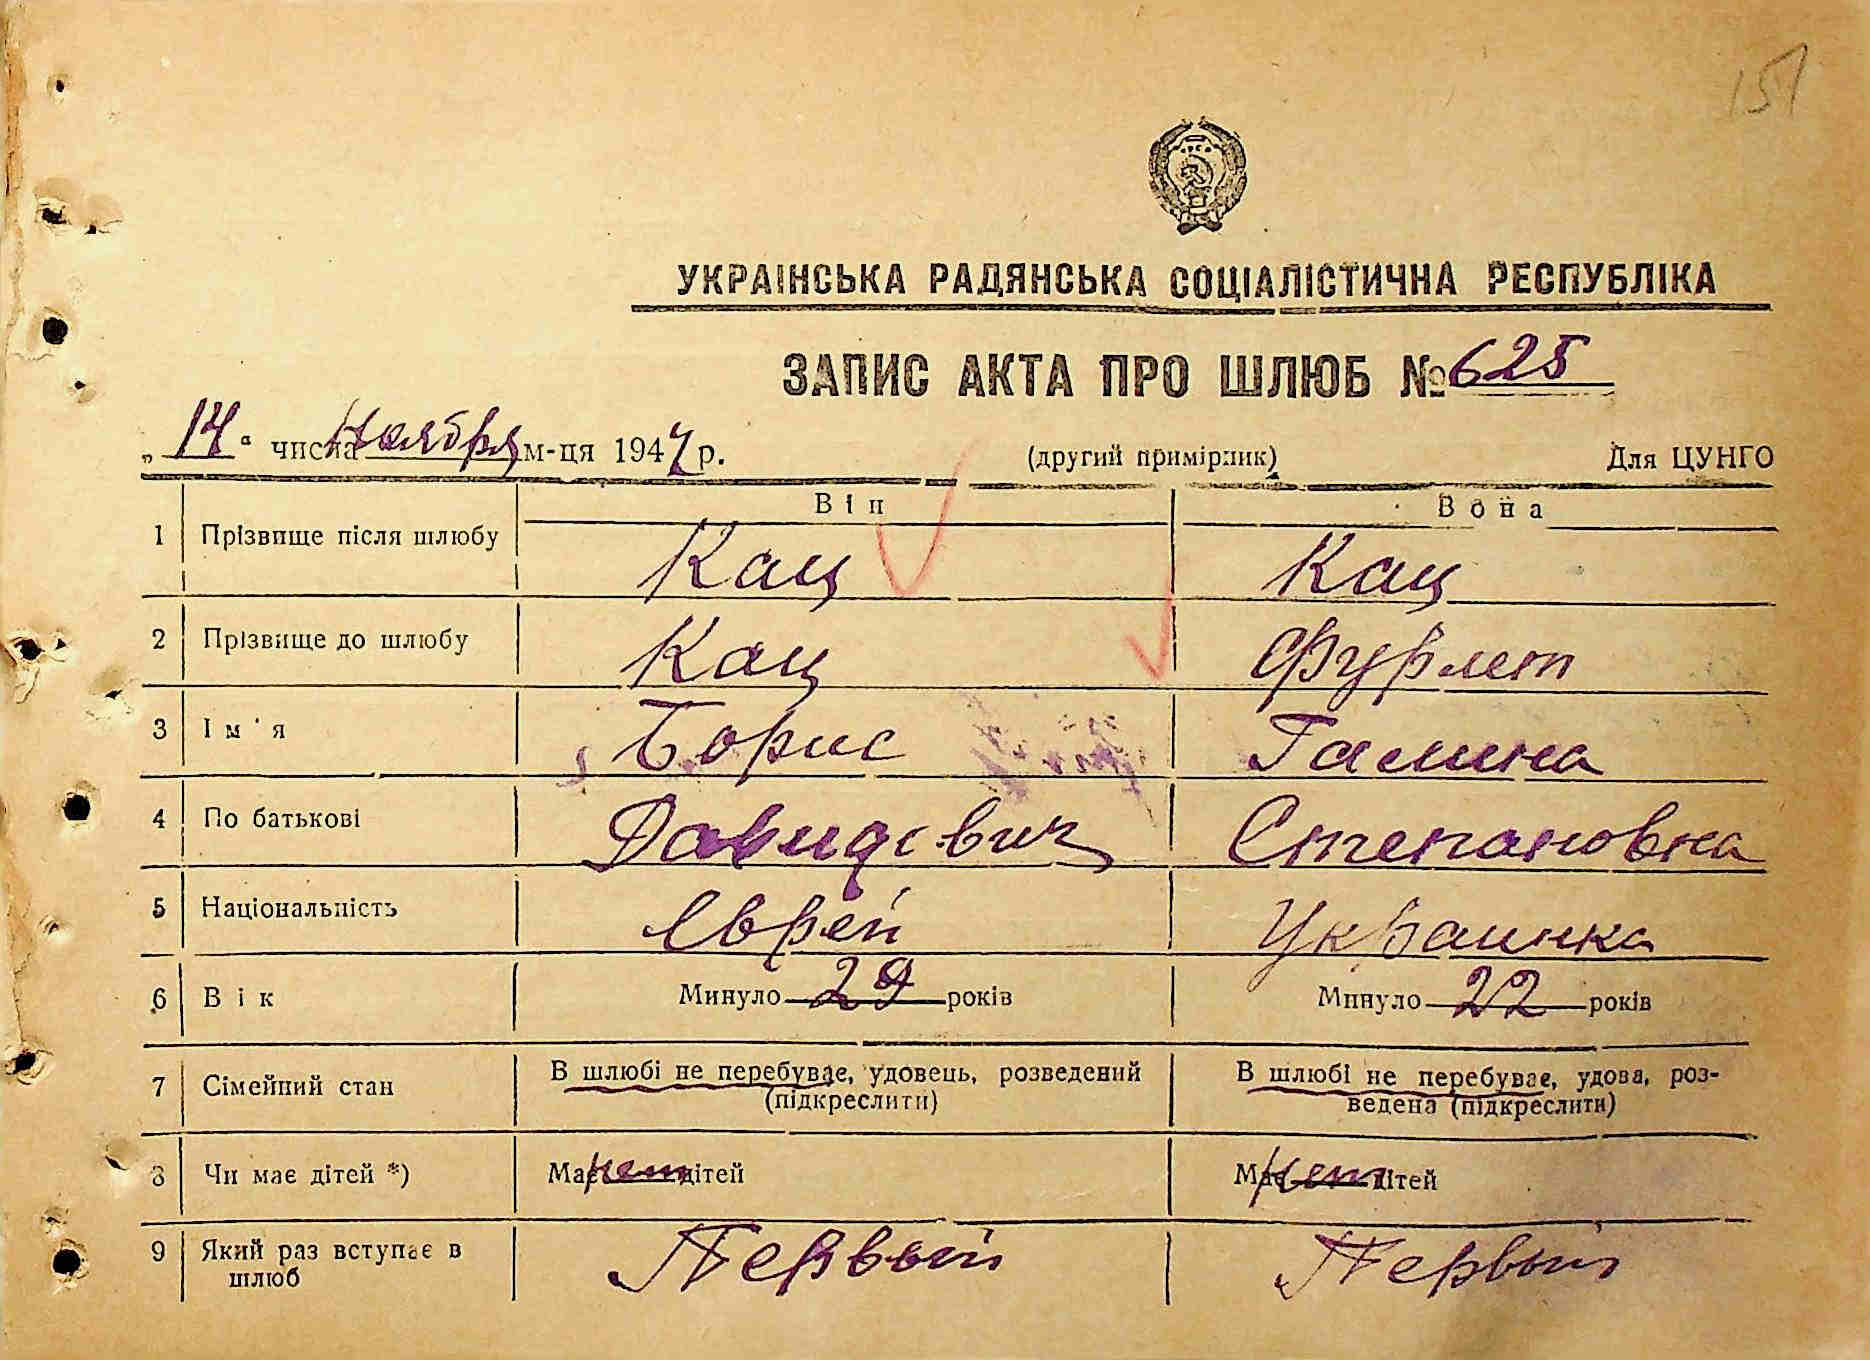 151
УКРАІНСЬКА РАДЯНСЬКА СОЦІАЛІСТИЧНА РЕСПУБЛІКА
ЗАПИС АКТА ПРО ШЛЮБ № 625
„14“ числа Ноября м-ця 1947 р. (другий примірник) Для ЦУНГО
Він Вона
1 Прізвище після шлюбу Кац Кац
2 Прізвище до шлюбу Кац Фурлет
3 Ім'я Борис Галина
4 По батькові Давидович Степановна
5 Національність Еврей Украинка
6 Вік Минуло 29 років Минуло 22 років
7 Сімейний стан В шлюбі не перебуває, удовець, розведений В шлюбі не перебуває, удова, роз-
(підкреслити) ведена (підкреслити)
8 Чи має дітей *) Має нет дітей Має нет дітей
9 Який раз вступає в Первый Первый
шлюб